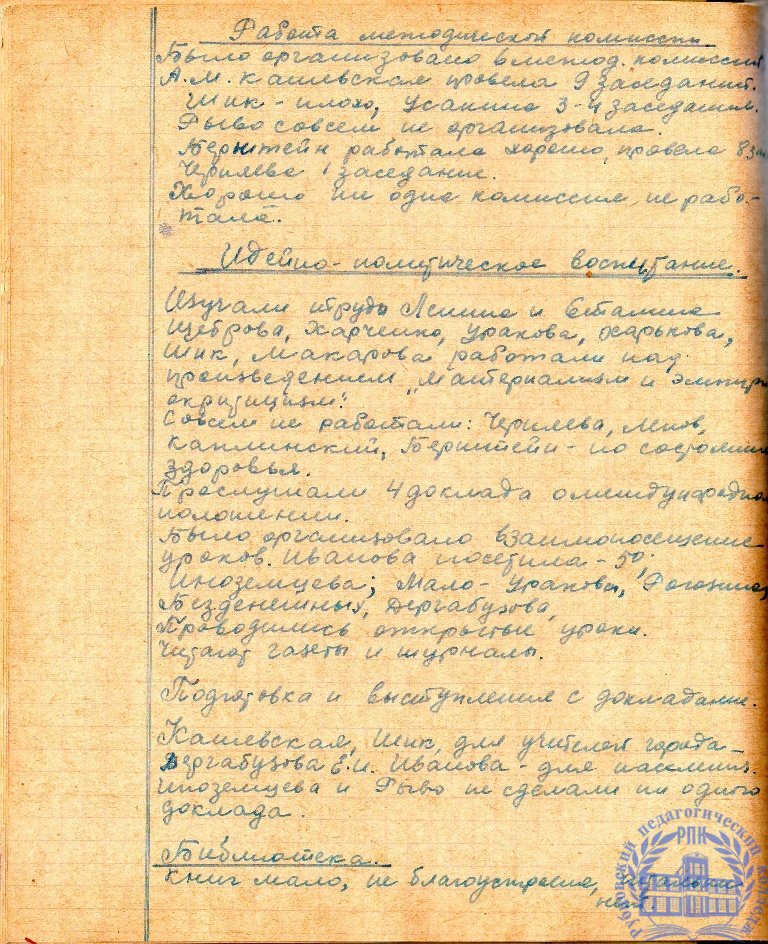 Работа методической комиссии
Было организовано 6 метод. комиссий
А.М. Кашевская провела 9 заседаний.
Шик - плохо, Усанина 3-4 заседания.
Рыво совсем не организовала.
Бернштейн работала хорошо, провела 8 за
Черняева 1 заседание.
Хорошо ни одна комиссия не рабо-
тала.
Идейно-политическое воспитание.
Изучали труды Ленина и Сталина
Щеброва, Харченко, Уракова, Харькова,
Шик, Макарова работали над
произведением „Материализм и эмпири
окритицизм".
Совсем не работали: Черняева, Ленов,
Каплинский, Бернштейн - по состоянию
здоровья.
Прослушали 4 доклада о международном
положении.
Было организовано взаимопосещение
уроков. Иванова посетила - 50,
Иноземцева; Мало - Уракова, Рогозина,
Безденежных, Дергабузова,
Проводились открытые уроки.
Читают газеты и журналы.
Подготовка и выступления с докладами.
Кашевская, Шик, для учителей города -
Дергабузова Е.И. Иванова - для населения.
Иноземцева и Рыво не сделали ни одного
доклада.
Библиотека.
Книг мало, не благоустроена, читальни
нет.
Рубцовский педагогический колледж
РПК